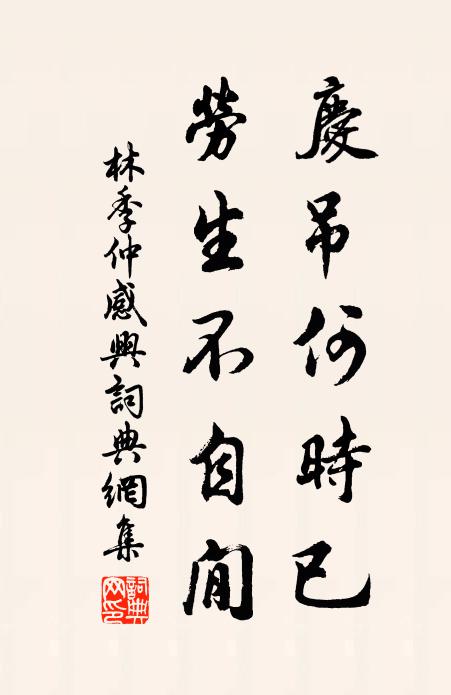 慶吊何時已
勞生不自閒
林季仲感興詞典網集
詞典網印